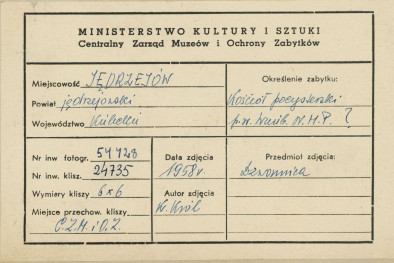 MINISTERSTWO KULTURY I SZTUKI
Centralny Zarząd Muzeów i Ochrony Zabytków
Miejscowość JĘDRZEJÓW
Powiat jędrzejowski
Województwo Kielecki
Określenie zabytku:
Kościół pocysterski
p.w. N.M.P. ?
Nr inw fotogr. 54728
Nr inw. klisz. 24735
Wymiary kliszy 6x6
Miejsce przechow. kliszy
C.Z.M.i O.Z.
Data zdjęcia
1958 r.
Autor zdjęcia
W. Król
Przedmiot zdjęcia:
Dzwonnica